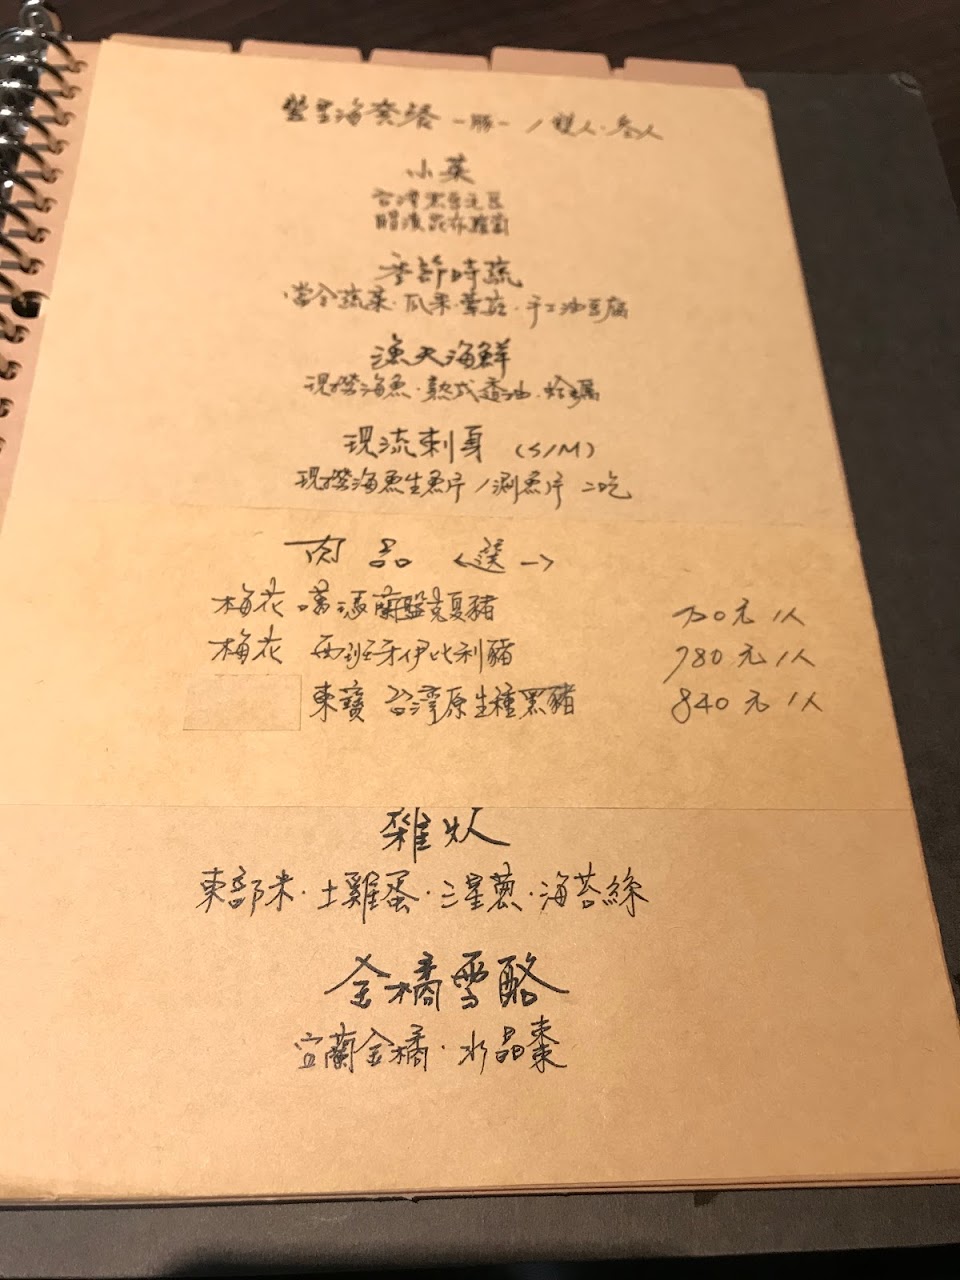 豐里海套餐 -豚- / 雙人·叁人
小菜
台灣黑豆毛豆
季節時蔬
當令蔬果·瓜果·葉菇·手工油豆腐
漁夫海鮮
現撈海魚·熟成透油·蛤蠣
現流刺身 (S/M)
現撈海魚生魚片/涮魚片 二吃
肉品 <選一>
梅花 嘎瑪蘭盤克夏豬 720元/人
梅花 西班牙伊比利豬 780元/人
東寶 台灣原生種黑豬 840元/人
雜炊
東部米·土雞蛋·三星蔥·海苔絲
金橘雪酪
宜蘭金橘·水晶棗